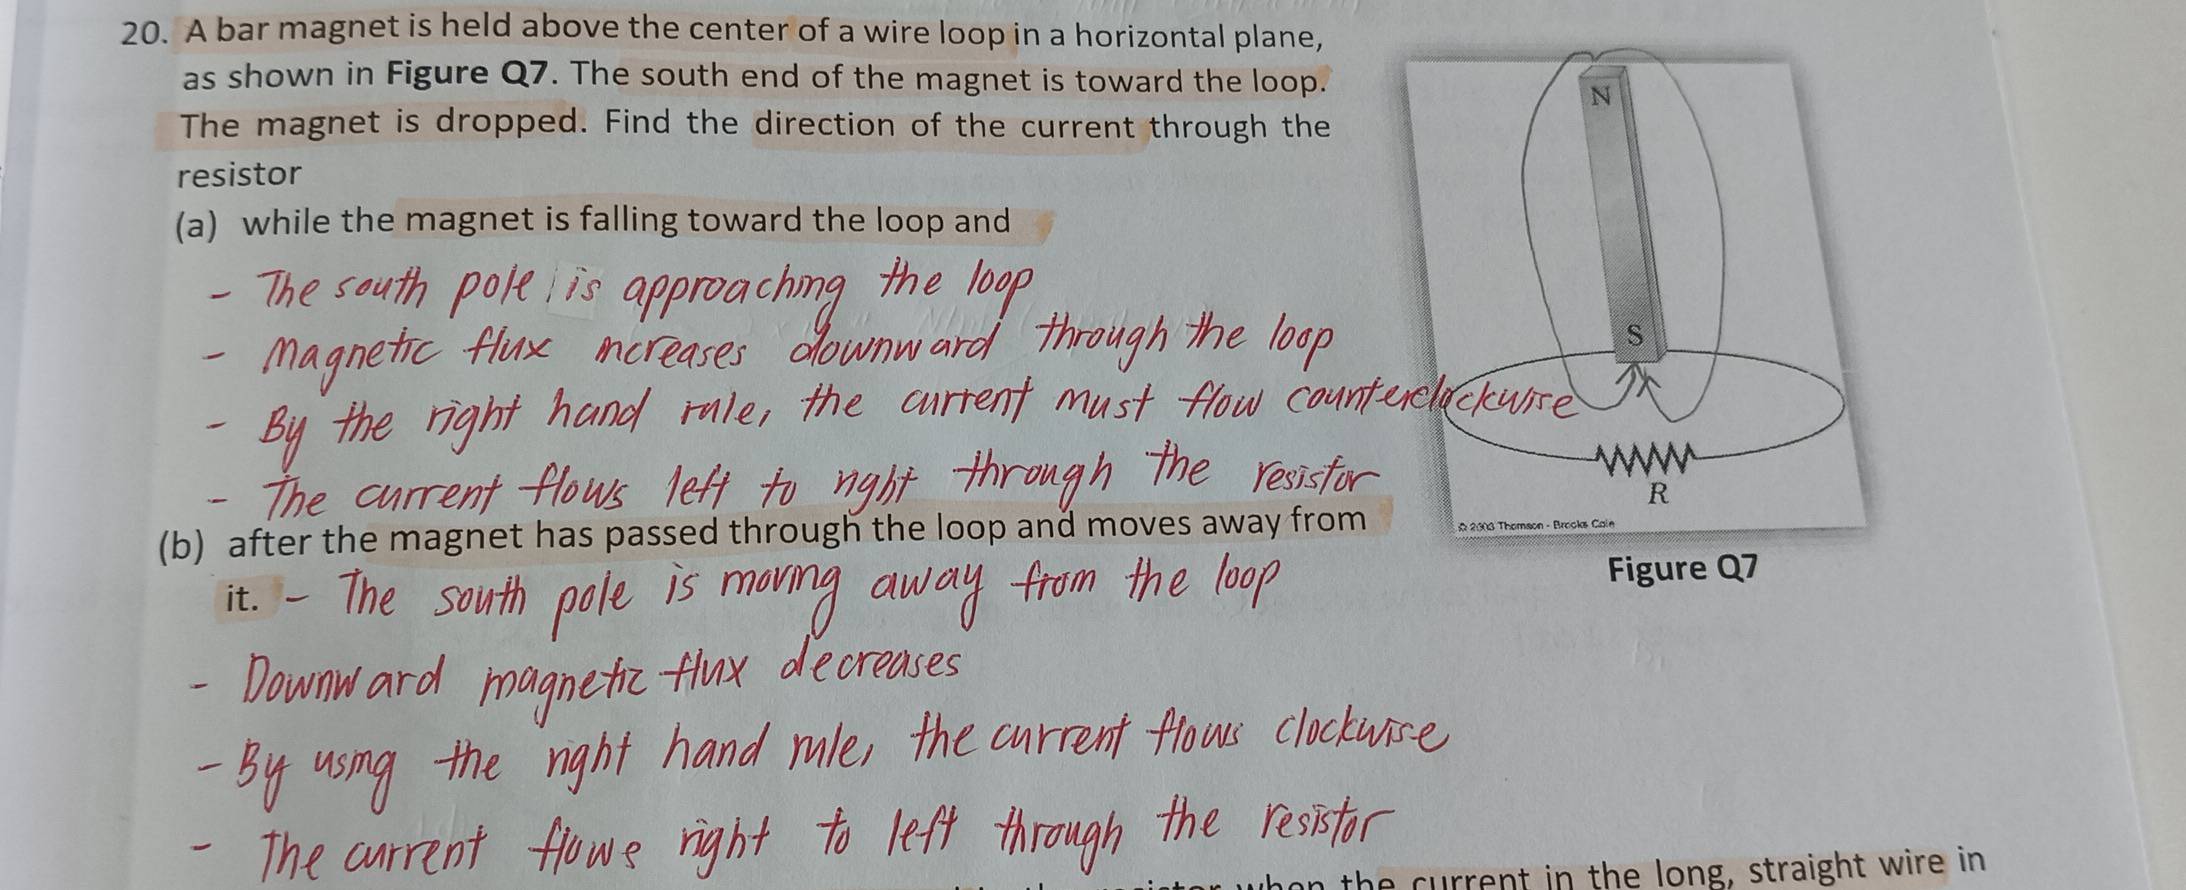 20. A bar magnet is held above the center of a wire loop in a horizontal plane,
as shown in Figure Q7. The south end of the magnet is toward the loop.
The magnet is dropped. Find the direction of the current through the
resistor
(a) while the magnet is falling toward the loop and
- The south pole is approaching the loop
- Magnetic flux increases downward through the loop
- By the right hand rule, the current must flow counterclockwise
- The current flows left to right through the resistor
(b) after the magnet has passed through the loop and moves away from
it. - The south pole is moving away from the loop
- Downward magnetic flux decreases
- By using the right hand rule, the current flows clockwise
- The current flows right to left through the resistor
when the current in the long, straight wire in
N
S
R
© 2003 Thomson - Brooks Cole
Figure Q7